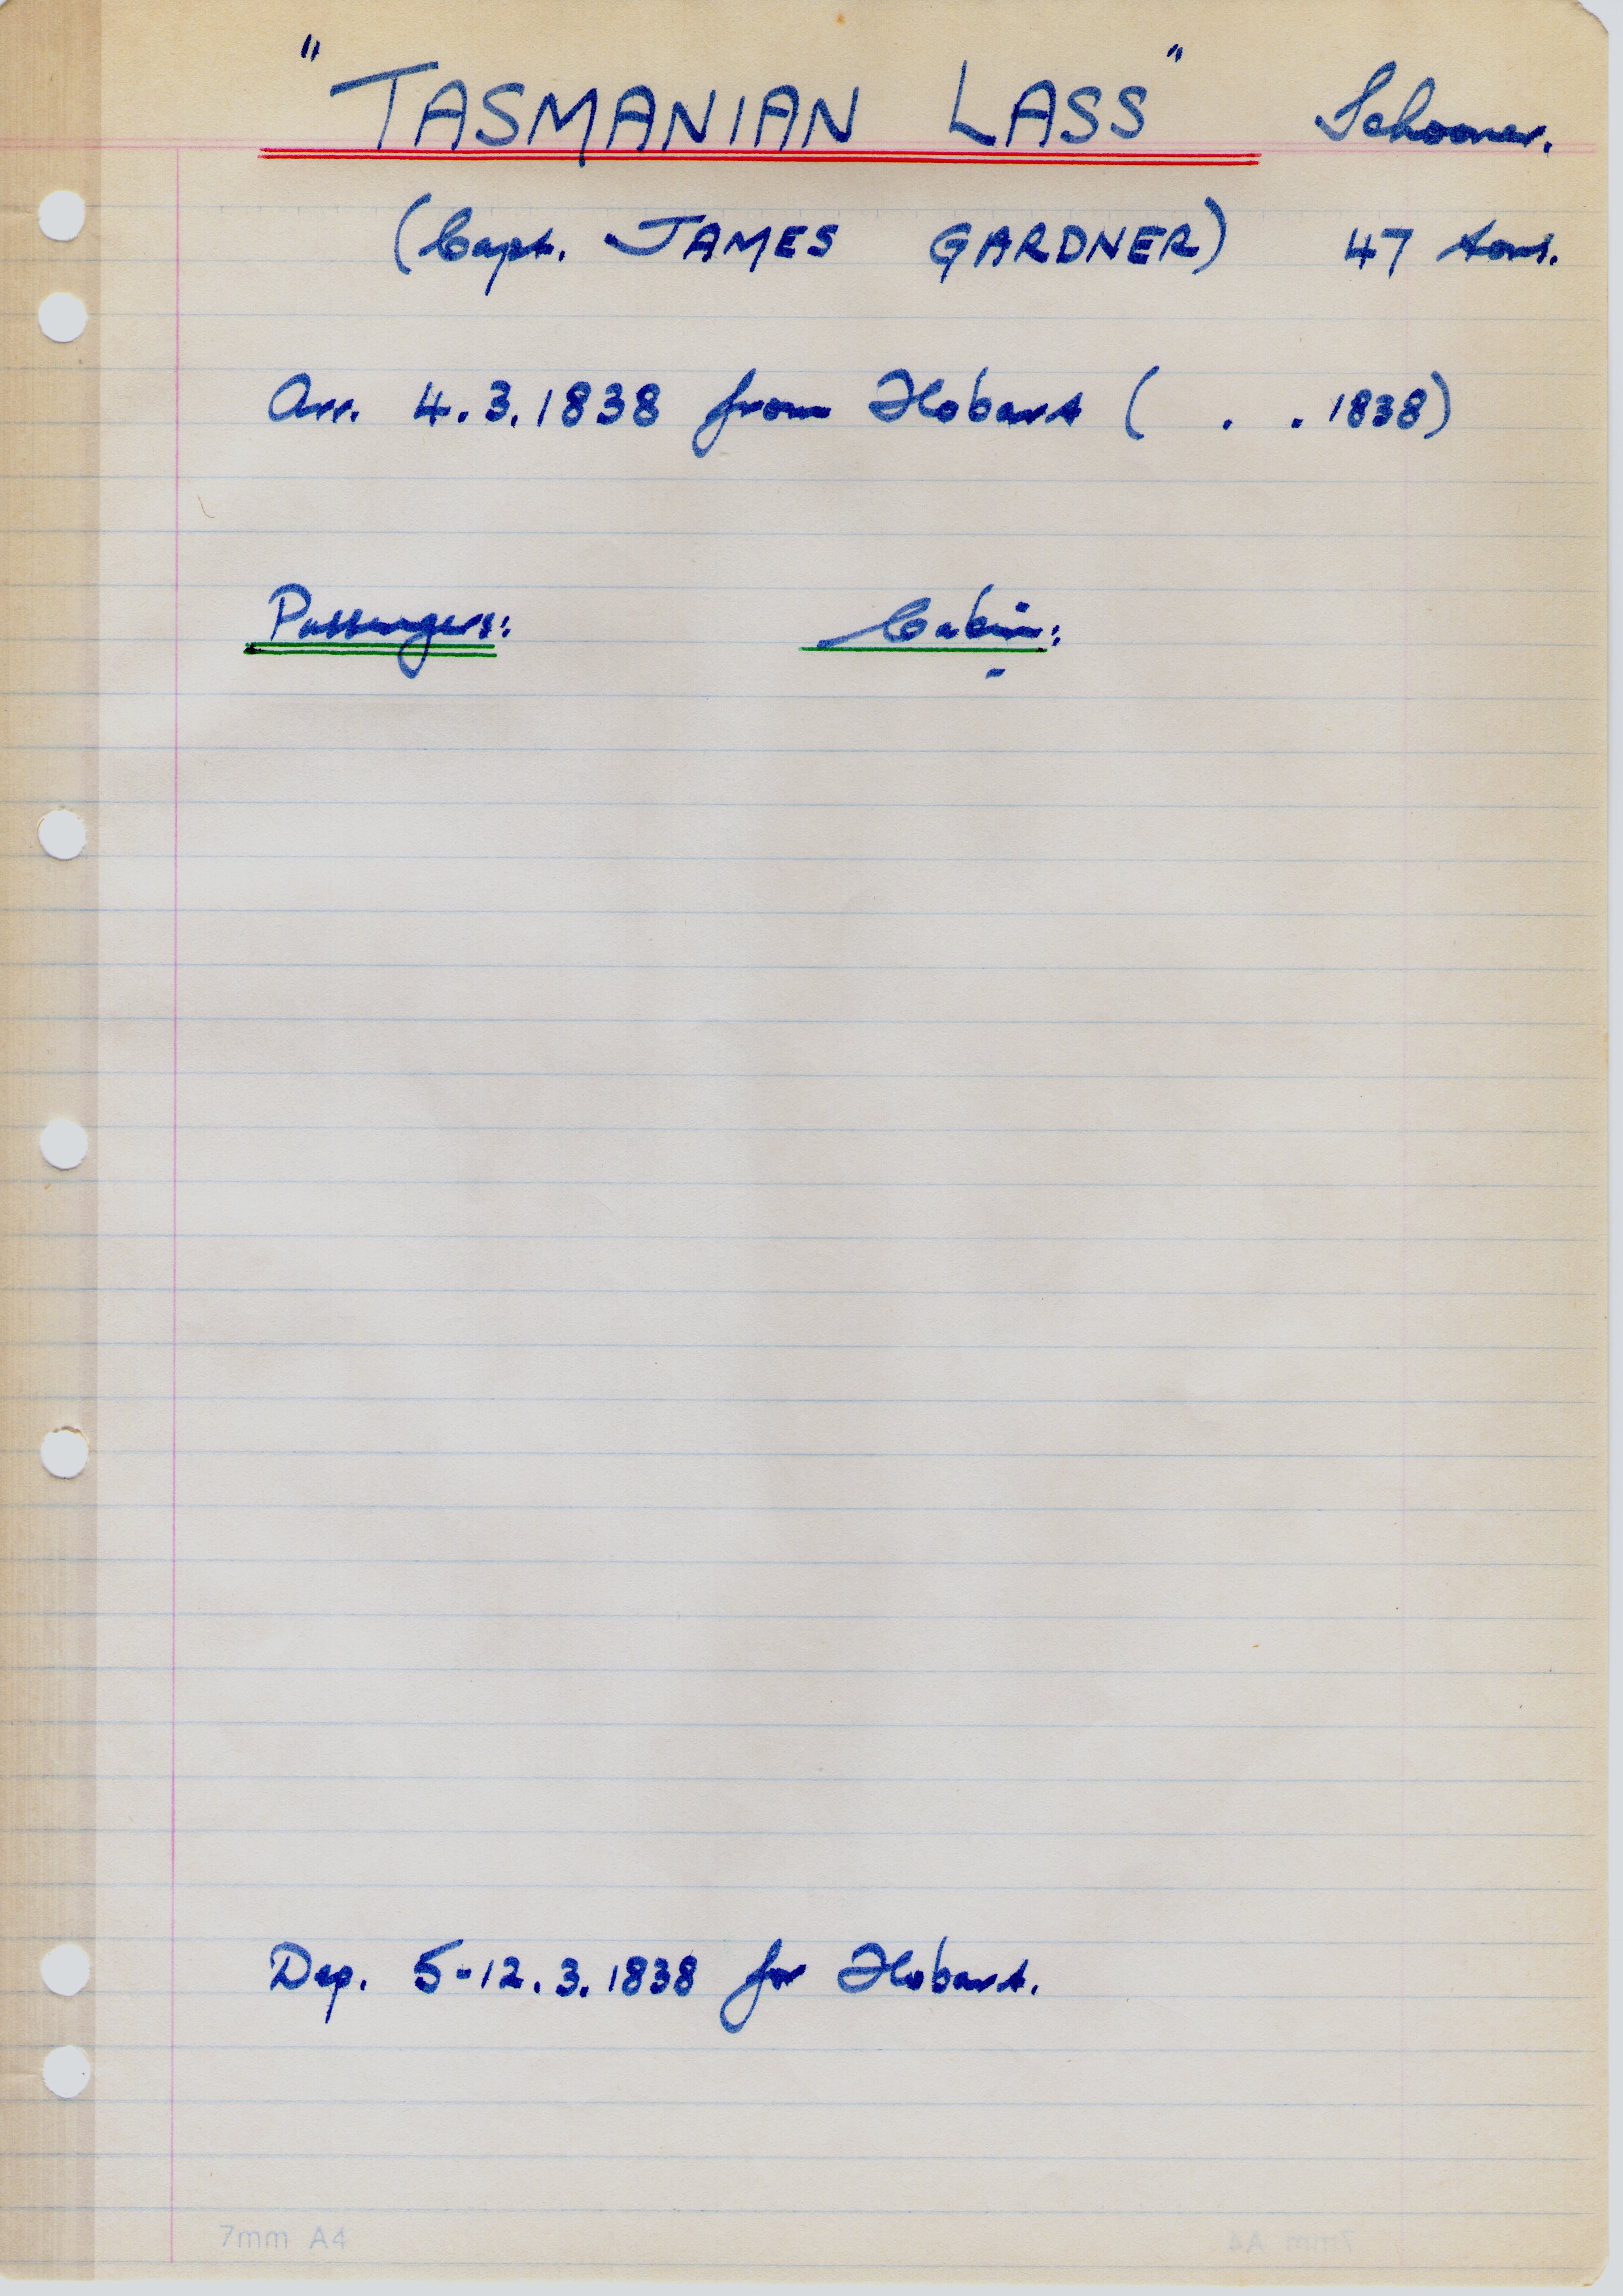 "TASMANIAN LASS" Schooner.
(Capt. JAMES GARDNER) 47 tons.
Arr. 4.3.1838 from Hobart ( . . 1838)
Passengers: Cabin:
-
Dep. 5-12.3.1838 for Hobart.
7mm A4